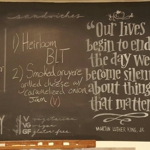 sandwiches
1) Heirloom
BLT
2) Smoked gruyere
grilled cheese w/
caramelized onion
Jam (V)
"Our lives
begin to end
the day we
become silent
about things
that matter
MARTIN LUTHER KING JR.